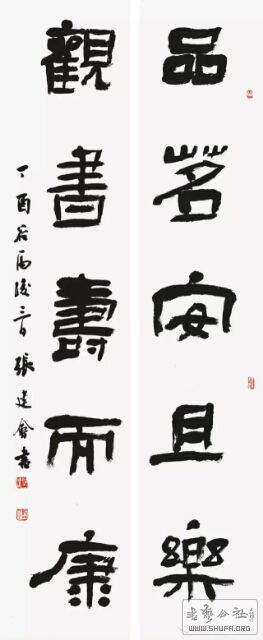 品茗安且樂
觀書壽而康
丁酉谷雨後三日張建會書
WWW.SHUFA.ORG